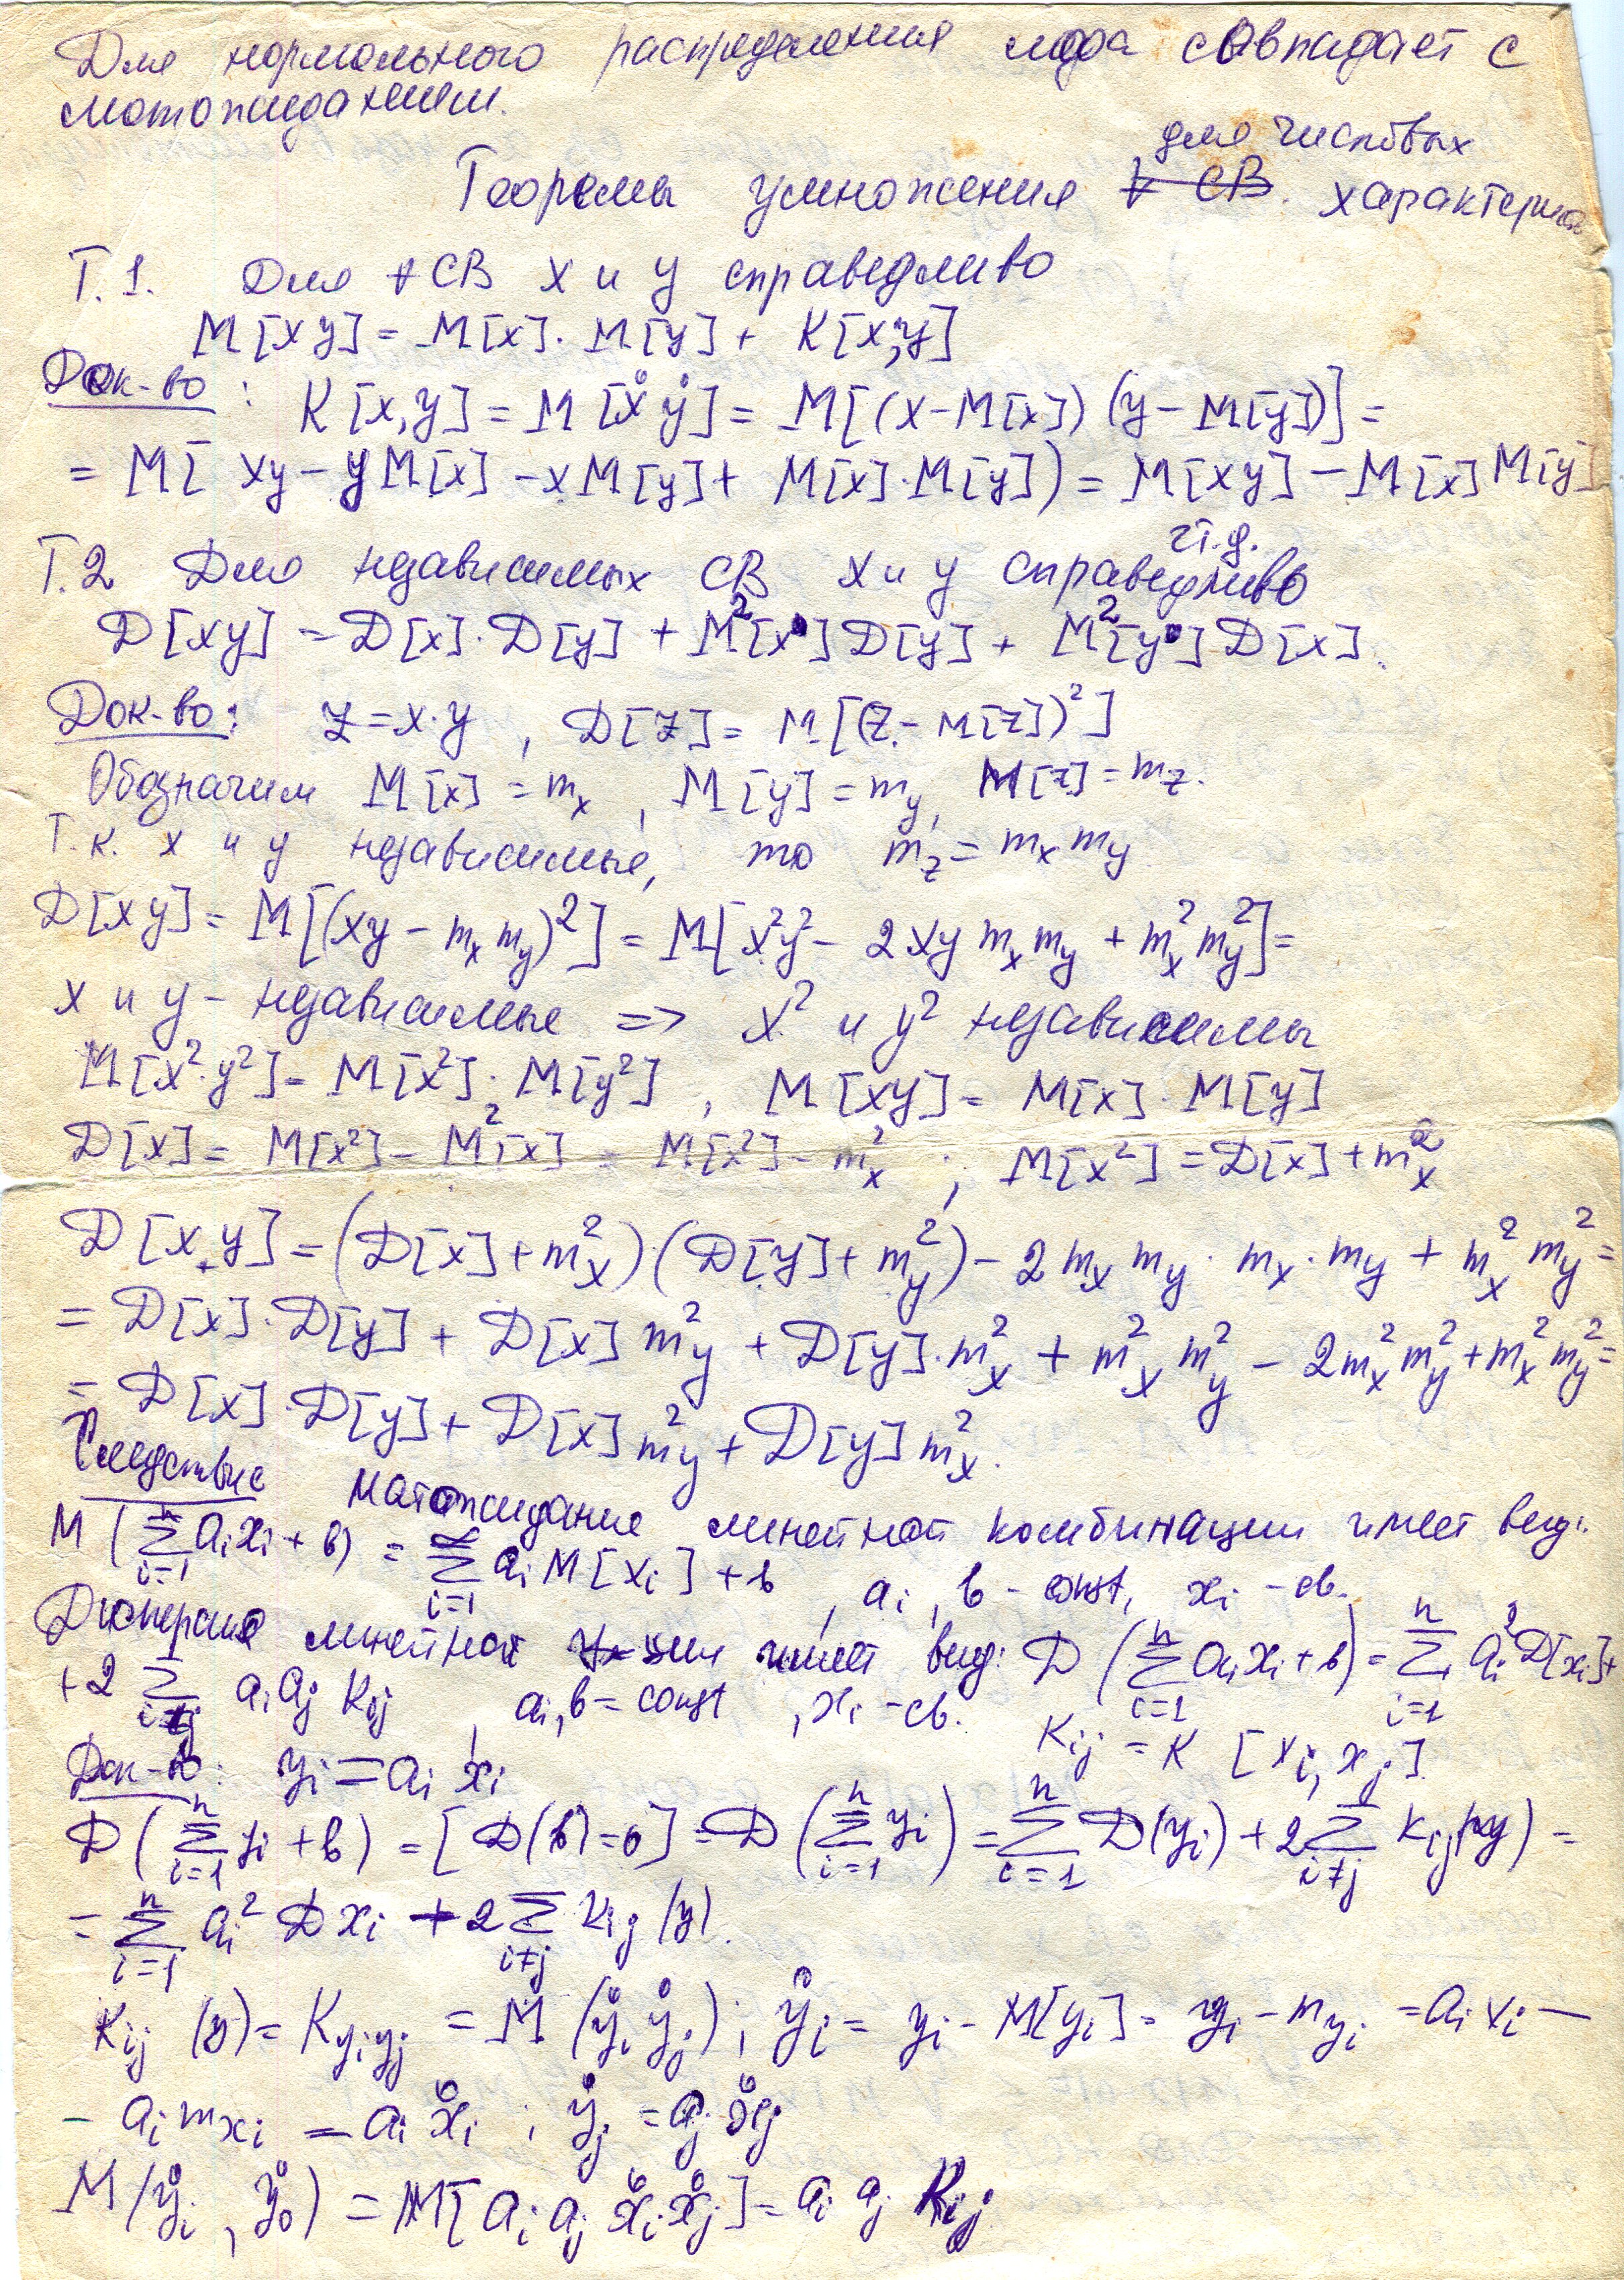 Для нормального распределения мода совпадает с
матожиданием.
для числовых
Теоремы умножения ∀ СВ. характерис
Т.1. Для ∀ СВ x и y справедливо
M[xy] = M[x]·M[y] + K[x,y]
Док-во: K[x,y] = M[x̊ẙ] = M[(x-M[x])(y-M[y])] =
= M[xy - yM[x] - xM[y] + M[x]·M[y]) = M[xy] - M[x]M[y]
чт.д.
Т.2 Для независимых СВ x и y справедливо
D[xy] = D[x]·D[y] + M²[x]D[y] + M²[y]D[x].
Док-во: z = x·y, D[z] = M[(z - M[z])²]
Обозначим M[x] = mₓ, M[y] = m_y, M[z] = m_z.
Т.к. x и y независимые, то m_z = mₓ m_y
D[xy] = M[(xy - mₓ m_y)²] = M[x²y² - 2xy mₓ m_y + mₓ² m_y²] =
x и y - независимые => x² и y² независимы
M[x²·y²] = M[x²]·M[y²], M[xy] = M[x]·M[y]
D[x] = M[x²] - M²[x] = M[x²] - mₓ²; M[x²] = D[x] + mₓ²
D[x·y] = (D[x] + mₓ²)·(D[y] + m_y²) - 2mₓ m_y·mₓ·m_y + mₓ² m_y² =
= D[x]·D[y] + D[x] m_y² + D[y]·mₓ² + mₓ² m_y² - 2mₓ² m_y² + mₓ² m_y² =
= D[x]·D[y] + D[x] m_y² + D[y] mₓ².
Следствие Матожидание линейной комбинации имеет вид:
M(∑_{i=1}^{n} aᵢxᵢ + b) = ∑_{i=1} aᵢM[xᵢ] + b, aᵢ, b - const, xᵢ - св.
Дисперсия линейной ф-ции имеет вид: D(∑_{i=1}^{n} aᵢxᵢ + b) = ∑_{i=1}^{n} aᵢ² D[xᵢ] +
+ 2 ∑_{i≠j} aᵢaⱼ Kᵢⱼ, aᵢ, b = const, xᵢ - св.
Kᵢⱼ = K[xᵢ, xⱼ]
Док-во: yᵢ = aᵢ xᵢ
D(∑_{i=1}^{n} yᵢ + b) = [D(b) = 0] = D(∑_{i=1}^{n} yᵢ) = ∑_{i=1}^{n} D(yᵢ) + 2∑_{i≠j} Kᵢⱼ(y) =
= ∑_{i=1}^{n} aᵢ² D xᵢ + 2∑_{i≠j} Kᵢⱼ(y).
Kᵢⱼ(y) = K_{yᵢyⱼ} = M(ẙᵢ ẙⱼ); ẙᵢ = yᵢ - M[yᵢ] = yᵢ - m_{yᵢ} = aᵢxᵢ -
- aᵢm_{xᵢ} = aᵢ x̊ᵢ; ẙⱼ = aⱼ x̊ⱼ
M(ẙᵢ, ẙⱼ) = M[aᵢ aⱼ x̊ᵢ x̊ⱼ] = aᵢ aⱼ Kᵢⱼ